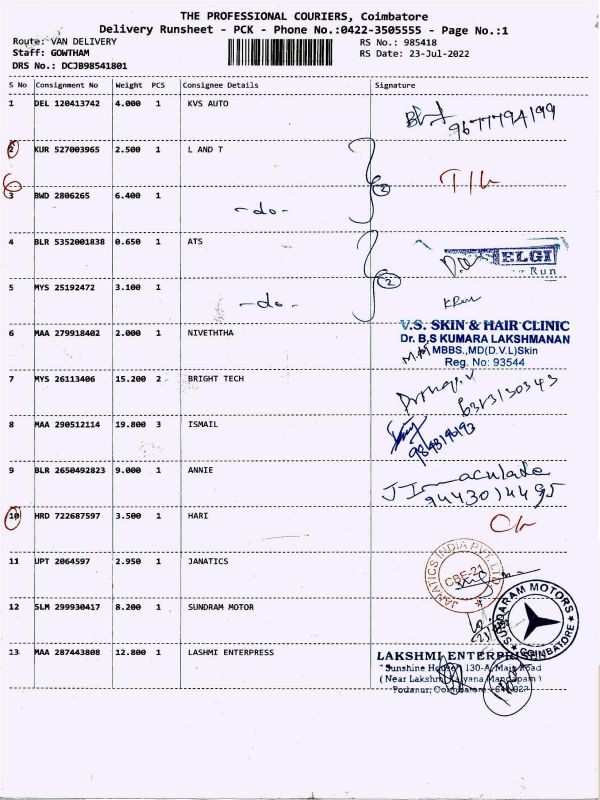 THE PROFESSIONAL COURIERS, Coimbatore
Delivery Runsheet - PCK - Phone No.:0422-3505555 - Page No.:1
Route: VAN DELIVERY RS No.: 985418
Staff: GOWTHAM RS Date: 23-Jul-2022
DRS No.: DCJB98541801
S No Consignment No Weight PCS Consignee Details Signature
1 DEL 120413742 4.000 1 KVS AUTO
9677794199
2 KUR 527003965 2.500 1 L AND T
3 BWD 2806265 6.400 1
-do- 2
4 BLR 5352001838 0.650 1 ATS
ELGI
Run
5 MYS 25192472 3.100 1
-do- 2
6 MAA 279918402 2.000 1 NIVETHTHA
V.S. SKIN & HAIR CLINIC
Dr. B.S KUMARA LAKSHMANAN
MBBS.,MD(D.V.L)Skin
Reg. No: 93544
7 MYS 26113406 15.200 2 BRIGHT TECH
6383130343
8 MAA 290512114 19.800 3 ISMAIL
9843190193
9 BLR 2650492823 9.000 1 ANNIE
J Immaculate
9443014495
10 HRD 722687597 3.500 1 HARI
11 UPT 2064597 2.950 1 JANATICS
JANATICS INDIA PVT. LTD
CBE-21
12 SLM 299930417 8.200 1 SUNDRAM MOTOR
SUNDARAM MOTORS
COIMBATORE
13 MAA 287443808 12.800 1 LASHMI ENTERPRESS
LAKSHMI ENTERPRISES
"Sunshine House" 130-A, Main Road
(Near Lakshmi Kalyana Mandapam)
Podanur, Coimbatore - 641 023